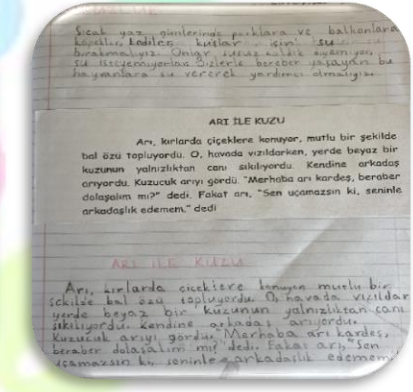 Sıcak yaz günlerinde parklara ve balkonlara
köpekler, kediler, kuşlar için su
bırakmalıyız. Onlar susuz kaldık diyemiyor,
su isteyemiyorlar. Bizlerle beraber yaşayan bu
hayvanlara su vererek yardımcı olmalıyız.
ARI İLE KUZU
Arı, kırlarda çiçeklere konuyor, mutlu bir şekilde
bal özü topluyordu. O, havada vızıldarken, yerde beyaz bir
kuzunun yalnızlıktan canı sıkılıyordu. Kendine arkadaş
arıyordu. Kuzucuk arıyı gördü. "Merhaba arı kardeş, beraber
dolaşalım mı?" dedi. Fakat arı, "Sen uçamazsın ki, seninle
arkadaşlık edemem." dedi
ARI İLE KUZU
Arı, kırlarda çiçeklere konuyor mutlu bir
şekilde bal özü topluyordu. O, havada vızıldar
yerde beyaz bir kuzunun yalnızlıktan canı
sıkılıyordu. Kendine arkadaş arıyordu.
Kuzucuk arıyı gördü. "Merhaba arı kardeş,
beraber dolaşalım mı?" dedi. Fakat arı, "Sen
uçamazsın ki, seninle arkadaşlık edemem